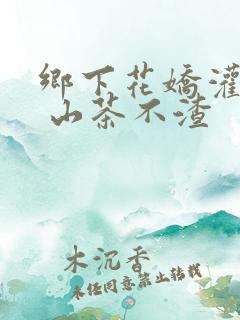 鄉下花嬌灌
山茶不渣
木沉香
未經同意禁止轉載